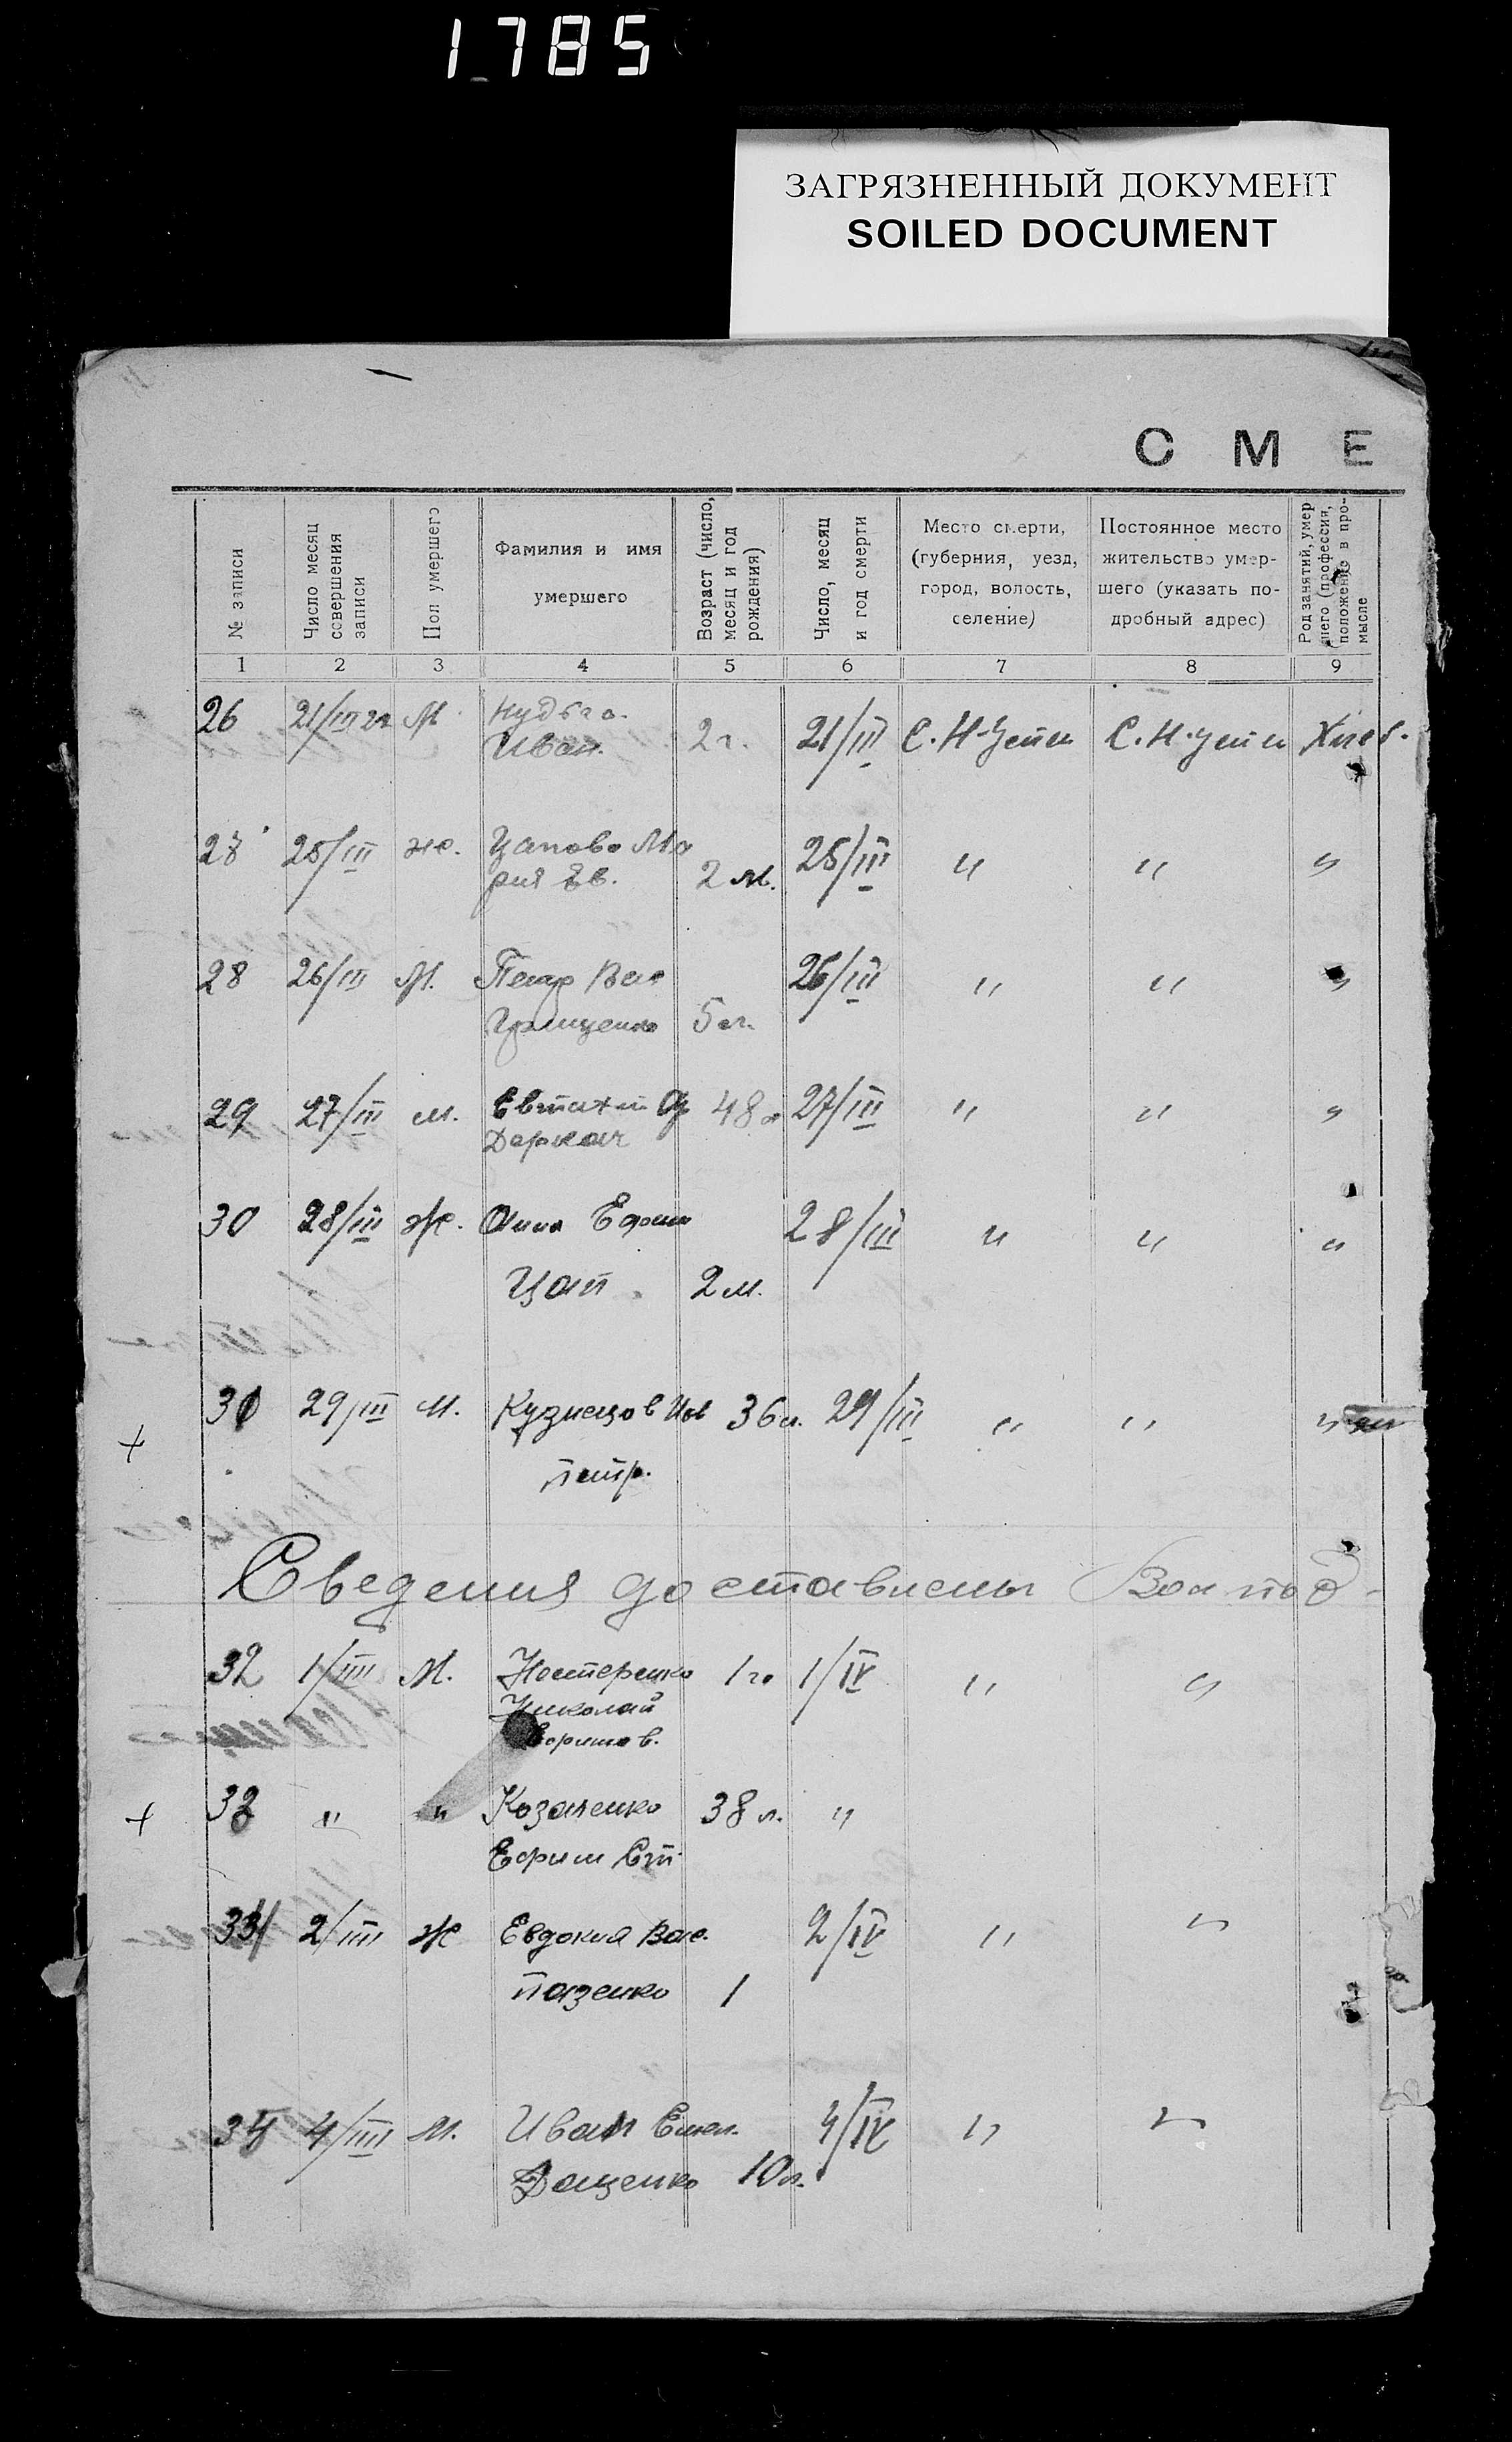 1785
ЗАГРЯЗНЕННЫЙ ДОКУМЕНТ
SOILED DOCUMENT
С М Е
№ записи
Число месяц совершения записи
Пол умершего
Фамилия и имя умершего
Возраст (число, месяц и год рождения)
Число, месяц и год смерти
Место смерти, (губерния, уезд, город, волость, селение)
Постоянное место жительство умершего (указать подробный адрес)
Род занятий, умершего (профессия, положение в промысле
1 2 3 4 5 6 7 8 9
26 21/III 22 М Нудьга 
Иван. 2 г. 21/III С. Н- С. Н- Хлеб.
27 25/III же. Цапова Ма
рия Ев. 2 м. 25/III " " "
28 26/III М. Петр Вас
Грищенко 5 26/III " " "
29 27/III м. Евтихий Ф 48 27/III " " "
Даркач
30 28/III Ж. Анна Ефим 28/III " " "
Цап 2 м.
31 29/III М. Кузнецов 36 л. 29/III " " "
петр.
Сведения доставлены Вол под
32 1/III М. Нестеренко 1 го 1/IV " "
Николай
33 " " Козаченко 38 л. "
Ефим Ст.
33/ 2/III Ж Евдокия Вас. 2/IV " "
Пазенко 1
34 4/III М. Иван Емел. 4/IV " "
Даценко 10 л.